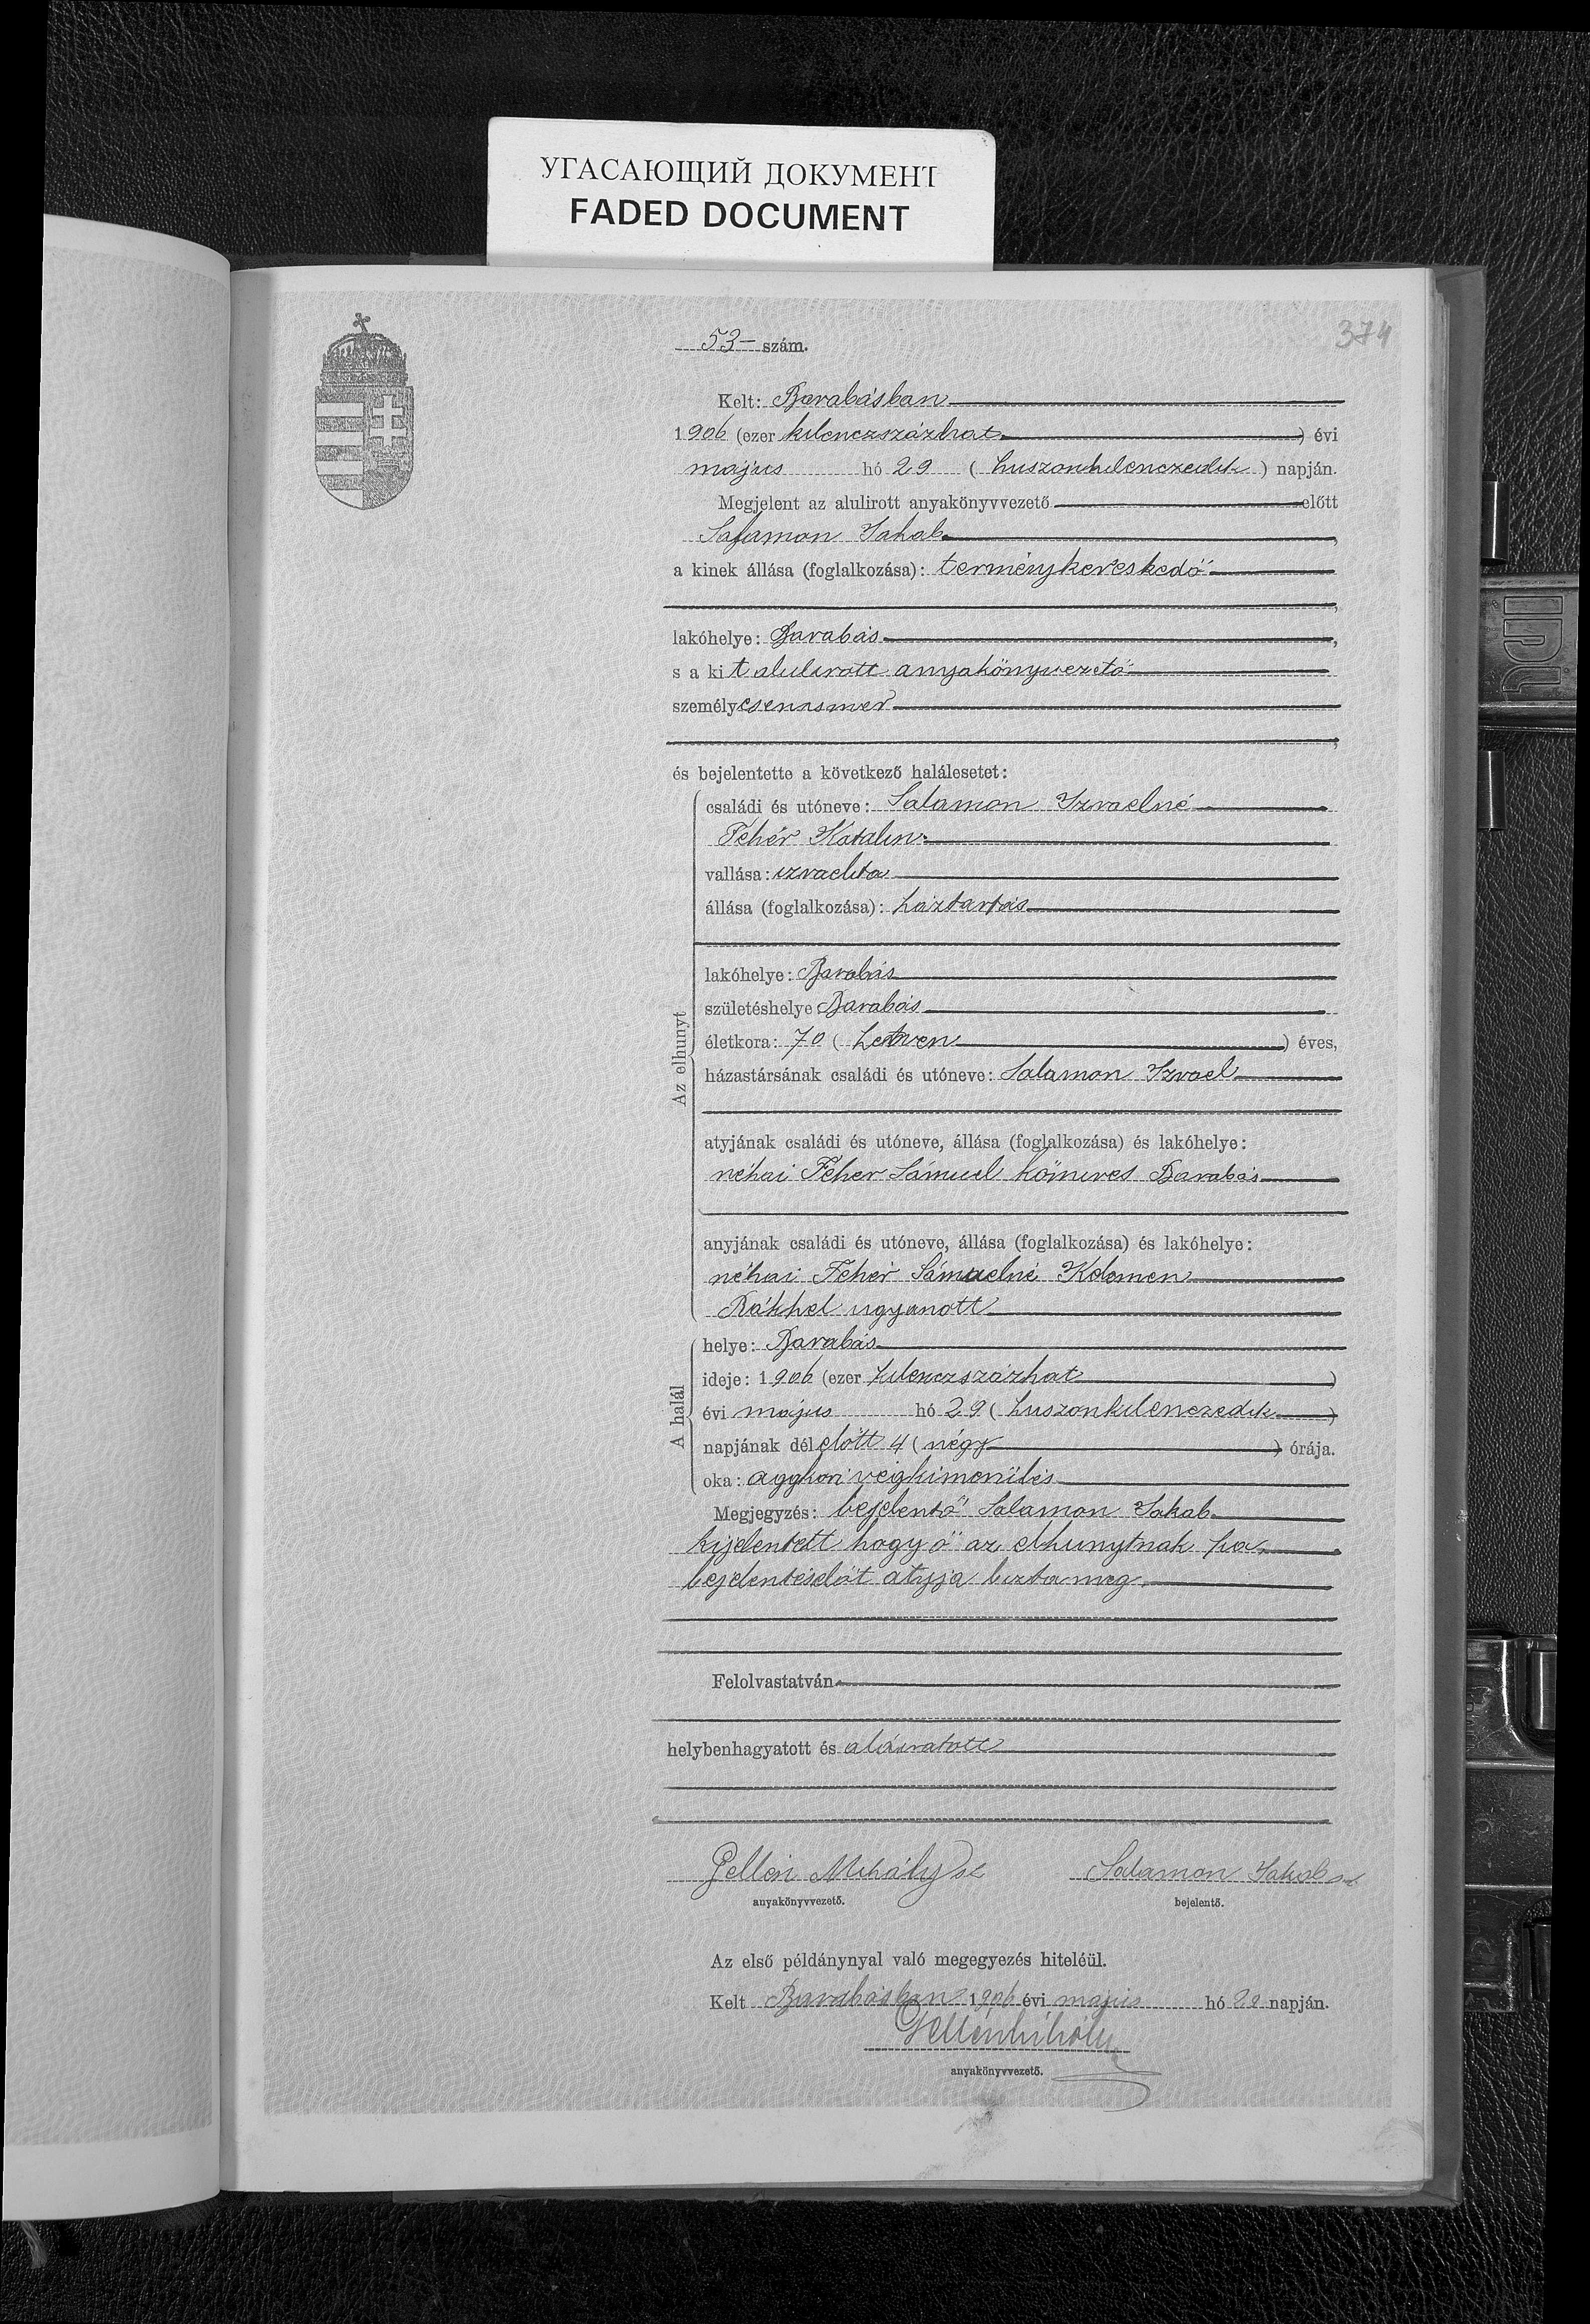 УГАСАЮЩИЙ ДОКУМЕНТ
FADED DOCUMENT
374
53 - szám.
Kelt: Barabásban
1906 (ezer kilenczszázhat ) évi
május hó 29 ( huszonkilenczedik ) napján.
Megjelent az alulirott anyakönyvvezető előtt
Salamon Jakab ,
a kinek állása (foglalkozása): terménykereskedő
,
lakóhelye: Barabás ,
s a kit alulirott anyakönyvezető
személyesen ismer
,
és bejelentette a következő halálesetet:
Az elhunyt
családi és utóneve: Salamon Izraelné
Fehér Katalin
vallása: izraelita
állása (foglalkozása): háztartás
lakóhelye: Barabás
születéshelye Barabás
életkora: 70 ( hetven ) éves,
házastársának családi és utóneve: Salamon Izrael
atyjának családi és utóneve, állása (foglalkozása) és lakóhelye:
néhai Feher Sámuel kőmives Barabás
anyjának családi és utóneve, állása (foglalkozása) és lakóhelye:
néhai Fehér Sámuelné Kelemen
Rákhel ugyanott
A halál
helye: Barabás
ideje: 1906 (ezer kilenczszázhat )
évi május hó 29 ( huszonkilenczedik )
napjának délelőtt 4 ( négy ) órája.
oka: aggkori végkimerülés
Megjegyzés: bejelentő Salamon Jakab
kijelentett hogy ő az elhunytnak fia
bejelentésőt atyja bizta meg.
Felolvastatván
helybenhagyatott és aláiratott
Gellén Mihály sk Salamon Jakab sk
anyakönyvvezető. bejelentő.
Az első példánynyal való megegyezés hiteléül.
Kelt Barabásban 1906 évi május hó 29 napján.
Gellén Mihály
anyakönyvvezető.